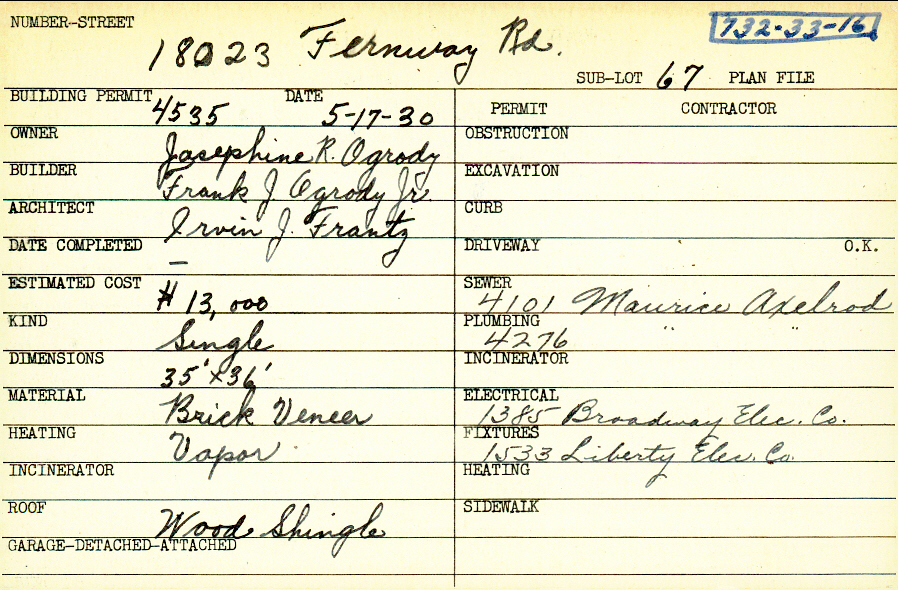 NUMBER-STREET
18023 Fernway Rd.
732-33-16
SUB-LOT 67 PLAN FILE
BUILDING PERMIT 4535 DATE 5-17-30
OWNER Josephine R. Ogrody
BUILDER Frank J. Ogrody Jr.
ARCHITECT Irvin J. Frantz
DATE COMPLETED —
ESTIMATED COST $ 13,000
KIND Single
DIMENSIONS 35' x 36'
MATERIAL Brick Veneer
HEATING Vapor
INCINERATOR
ROOF Wood Shingle
GARAGE-DETACHED-ATTACHED
PERMIT CONTRACTOR
OBSTRUCTION
EXCAVATION
CURB
DRIVEWAY O.K.
SEWER 4101 Maurice Axelrod
PLUMBING 4276 " "
INCINERATOR
ELECTRICAL 1385 Broadway Elec. Co.
FIXTURES 1533 Liberty Elec. Co.
HEATING
SIDEWALK